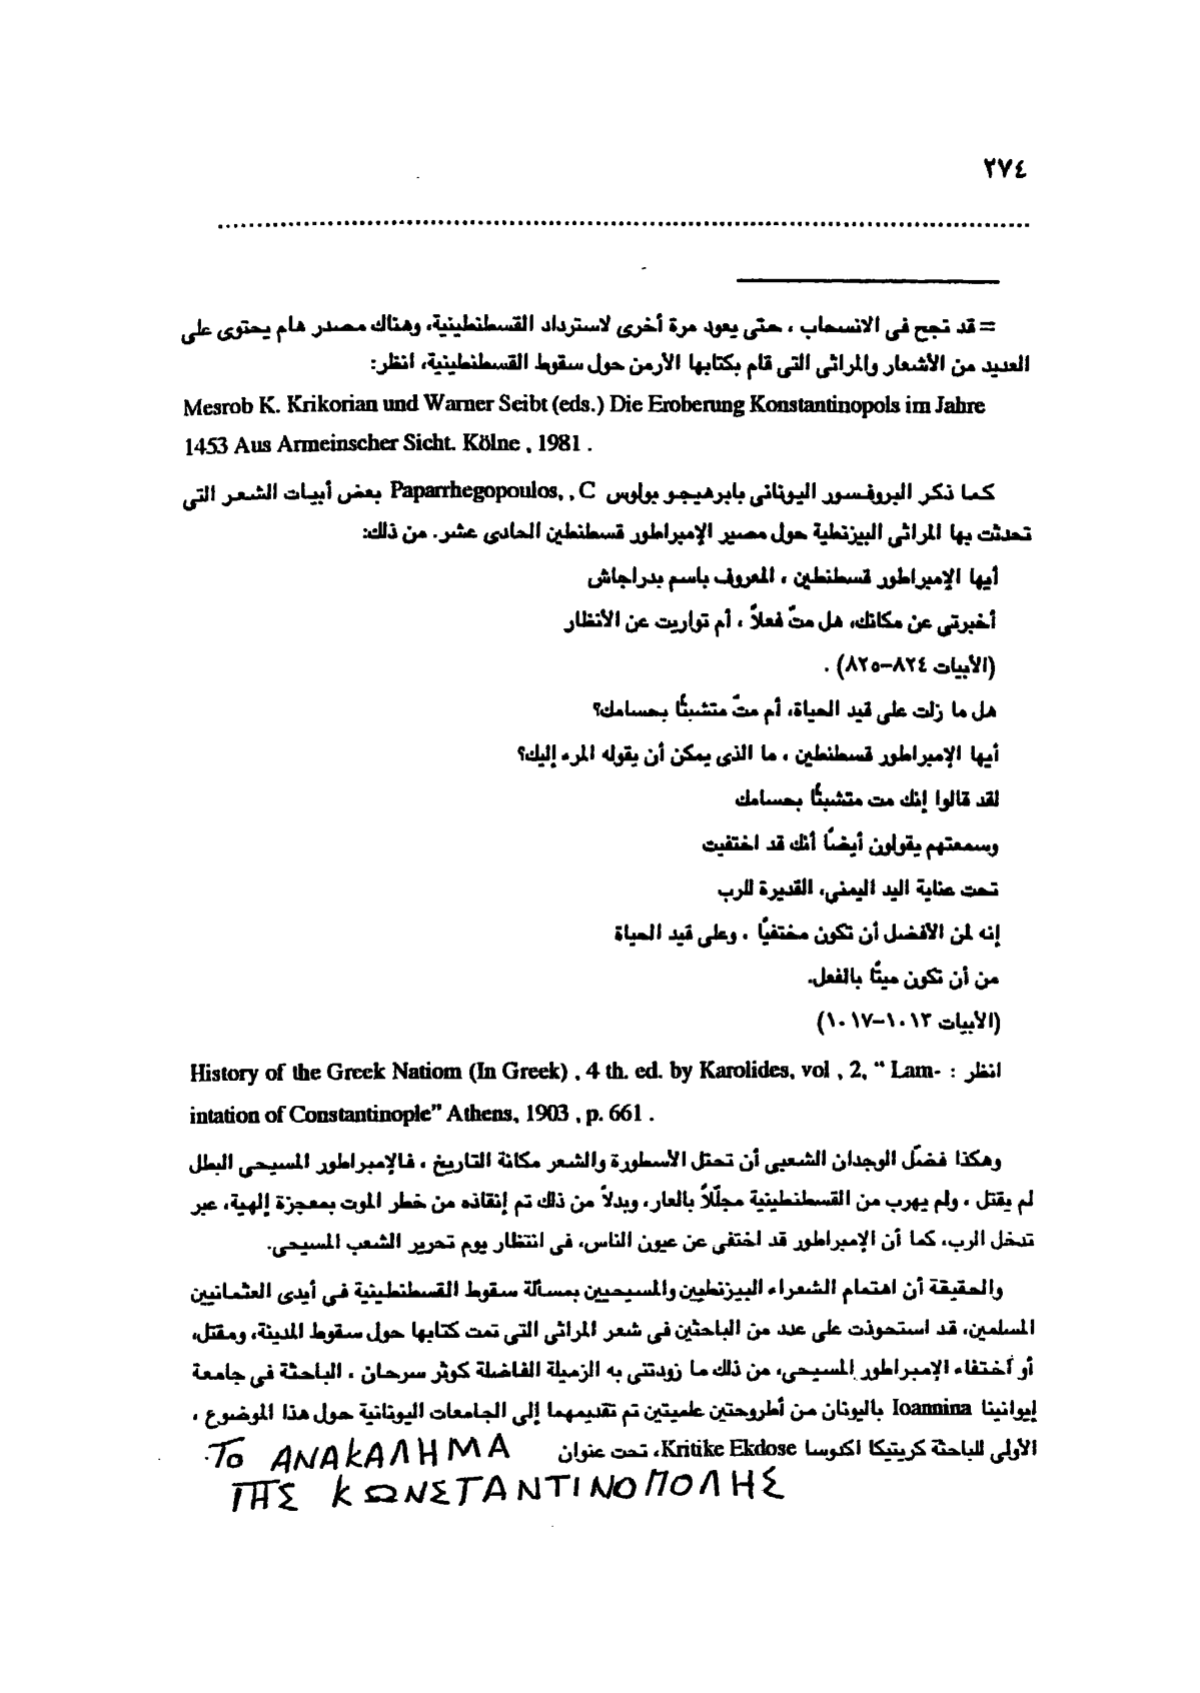 ٢٧٤
= قد نجح فى الانسحاب ، حتى يعود مرة أخرى لاسترداد القسطنطينية، وهناك مصدر هام يحتوى على
العديد من الأشعار والمراثى التى قام بكتابها الأرمن حول سقوط القسطنطينية، انظر:
Mesrob K. Krikorian und Warner Seibt (eds.) Die Eroberung Konstantinopols im Jahre
1453 Aus Armeinscher Sicht. Kölne , 1981 .
كما ذكر البروفسور اليونانى بابرهيجو بولوس Paparrhegopoulos, , C بعض أبيات الشعر التى
تحدثت بها المراثى البيزنطية حول مصير الإمبراطور قسطنطين الحادى عشر. من ذلك:
أيها الإمبراطور قسطنطين ، المعروف باسم بدراجاش
أخبرتى عن مكانك، هل متّ فعلاً ، أم تواريت عن الأنظار
(الأبيات ٨٢٤–٨٢٥) .
هل ما زلت على قيد الحياة، أم متّ متشبثًا بحسامك؟
أيها الإمبراطور قسطنطين ، ما الذى يمكن أن يقوله المرء إليك؟
لقد قالوا إنك مت متشبثًا بحسامك
وسمعتهم يقولون أيضًا أنك قد اختفيت
تحت عناية اليد اليمنى، القديرة للرب
إنه لمن الأفضل أن تكون مختفيًا ، وعلى قيد الحياة
من أن تكون ميتًا بالفعل.
(الأبيات ١٠١٣–١٠١٧)
انظر : History of the Greek Natiom (In Greek) , 4 th. ed. by Karolides, vol , 2, “ Lam-
intation of Constantinople” Athens, 1903 , p. 661 .
وهكذا فضّل الوجدان الشعبى أن تحتل الأسطورة والشعر مكانة التاريخ ، فالإمبراطور المسيحى البطل
لم يقتل ، ولم يهرب من القسطنطينية مجلّلاً بالعار، وبدلاً من ذلك تم إنقاذه من خطر الموت بمعجزة إلهية، عبر
تدخل الرب، كما أن الإمبراطور قد اختفى عن عيون الناس، فى انتظار يوم تحرير الشعب المسيحى.
والحقيقة أن اهتمام الشعراء البيزنطيين والمسيحيين بمسألة سقوط القسطنطينية فى أيدى العثمانيين
المسلمين، قد استحوذت على عدد من الباحثين فى شعر المراثى التى تمت كتابها حول سقوط المدينة، ومقتل،
أو اختفاء الإمبراطور المسيحى، من ذلك ما زودتنى به الزميلة الفاضلة كوثر سرحان ، الباحثة فى جامعة
إيوانينا Ioannina باليونان من أطروحتين علميتين تم تقديمهما إلى الجامعات اليونانية حول هذا الموضوع ،
الأولى للباحثة كريتيكا اكدوسا Kritike Ekdose، تحت عنوان ΤΟ ΑΝΑΚΑΛΗΜΑ
ΤΗΣ ΚΩΝΣΤΑΝΤΙΝΟΠΟΛΗΣ